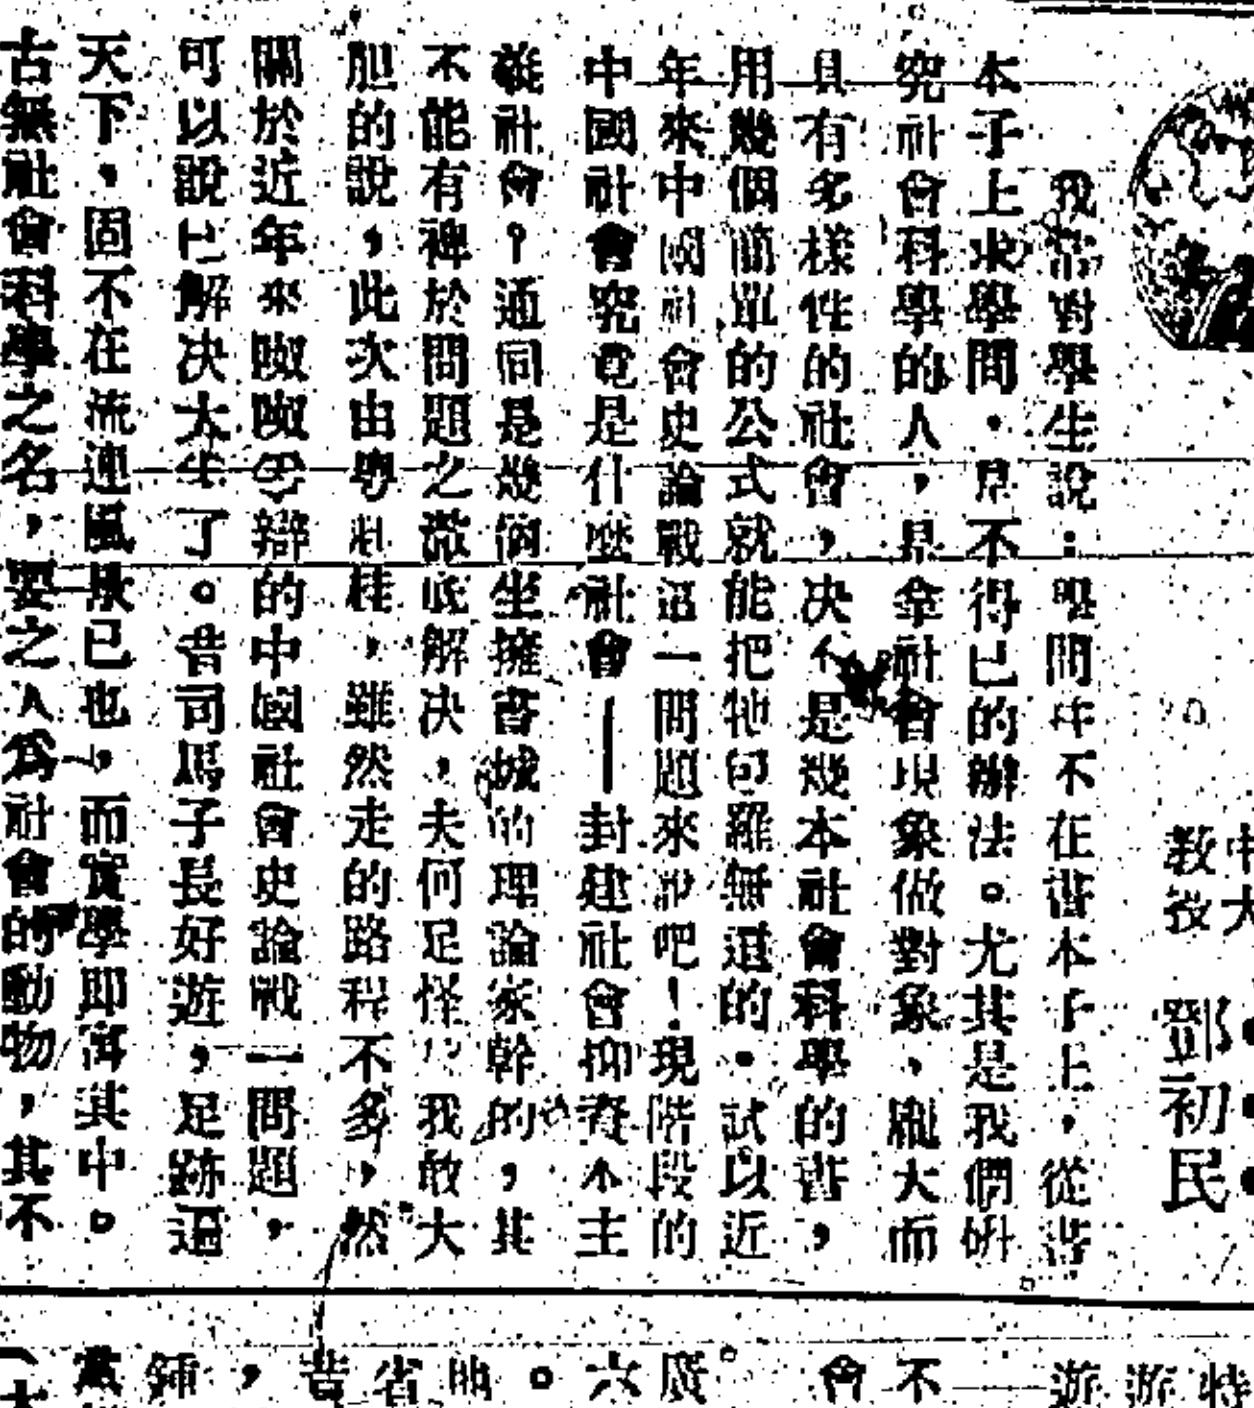 中大
教授　鄧初民
我常對學生說：學問并不在書本子上，從書
本子上求學問，是不得已的辦法。尤其是我們研
究社會科學的人，是拿社會現象做對象，龐大而
具有多樣性的社會，决不是幾本社會科學的書，
用幾個簡單的公式就能把牠包羅無遺的。試以近
年來中國社會史論戰這一問題來說吧！現階段的
中國社會究竟是什麼社會——封建社會抑資本主
義社會？通同是幾個坐擁書城的理論家幹的，其
不能有裨於問題之澈底解决，夫何足怪　我敢大
胆的說，此次由粤　桂，雖然走的路程不多，然
關於近年來呶呶　辯的中國社會史論戰一問題，
可以說已解决大半了。昔司馬子長好遊，足跡遍
天下，固不在流連風　已也，而實學即寓其中。
古無社會科學之名，要之人爲社會的動物，其不
特
游
游
不
會
廣
六
。
省
昔
，
鍾
黨